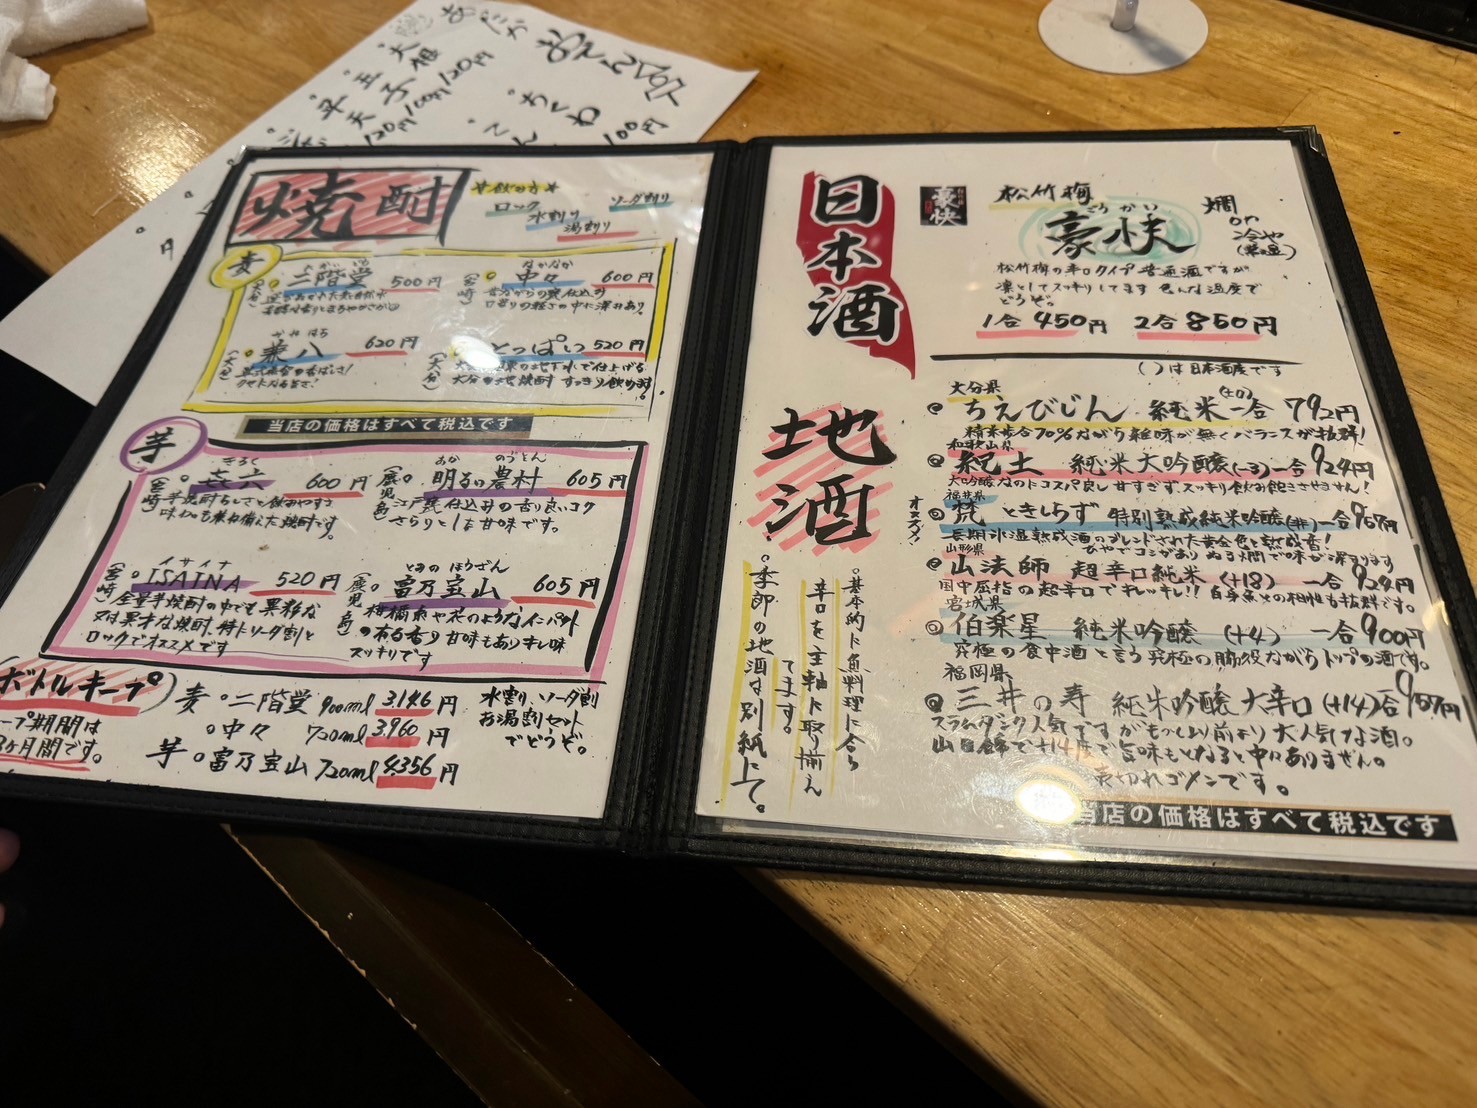 おでん
大根 120円
玉子 100円
平天 120円
ちくわ 100円
焼酎
飲み方
ロック
水割り
湯割り
ソーダ割り
麦
にかいどう
二階堂 500円
なかなか
(宮崎) 中々 600円
昔ながらの甕仕込み
口当りの軽さの中に深みあり。
かねはち
(大分) 兼八 620円
クセになる旨さ!
(大分) とっぱい 520円
の地下水で仕上げる
大分の地焼酎 すっきり飲めます。
当店の価格はすべて税込です
芋
きろく
(宮崎) 㐂六 600円
芋焼酎らしさと飲みやすさ
味わいも兼ね備えた焼酎です。
あか のうそん
(鹿児島) 明るい農村 605円
江戸甕仕込みの香り良いコク
さらりとした甘味です。
イサイナ
(宮崎) ISAINA 520円
全量芋焼酎の中でも異彩な
ロックでオススメです
とみのほうざん
(鹿児島) 富乃宝山 605円
柑橘系や花のようなインパクト
の有る香り 甘味もありキレ味
スッキリです
ボトルキープ
キープ期間は
3ヶ月間です。
麦 二階堂 900ml 3,146円
中々 720ml 3,960円
芋 富乃宝山 720ml 4,356円
水割、ソーダ割
お湯割セット
でどうぞ。
日本酒
豪快
松竹梅
ごうかい
豪快
燗
or
冷や
(常温)
松竹梅の辛口タイプ 普通酒ですが
凛としてスッキリしてます 色んな温度で
どうぞ。
1合 450円 2合 850円
( )は日本酒度です
地酒
基本的に魚料理に合う
辛口を主軸に取り揃え
てます。
季節の地酒は別紙にて。
大分県
ちえびじん 純米 (±0) 一合 792円
精米歩合70%ながら雑味が無くバランスが抜群!
和歌山県
紀土 純米大吟醸 (-3) 一合 924円
大吟醸なのにコスパ良し 甘すぎず、スッキリ飲み飽きさせません!
福井県
オススメ!
梵 ときしらず 特別熟成純米吟醸 (非) 一合 957円
長期氷温熟成酒のブレンドされた黄金色と熟成香!
ひやでコシがあり ぬる燗で味が深まります
山形県
山法師 超辛口純米 (+18) 一合 924円
国中屈指の超辛口でキレッキレ!! 白身魚との相性も抜群です。
宮城県
伯楽星 純米吟醸 (+4) 一合 900円
究極の食中酒と言う究極の脇役ながらトップの酒です。
福岡県
三井の寿 純米吟醸 大辛口 (+14) 一合 957円
スラムダンク人気ですがもっと以前より大人気な酒。
山田錦で+14度で旨味もとなると中々ありません。
売切れゴメンです。
当店の価格はすべて税込です